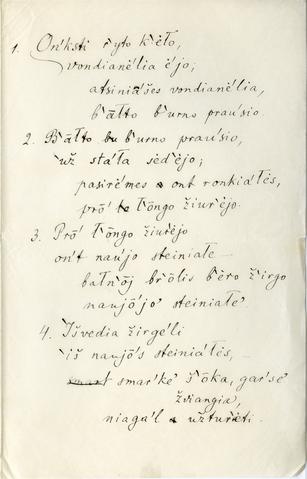 1. On'ksti r̃yto kė̃lo,
vondianė̃lia ė́jo;
atsiniášes vondianė̃lia,
bãlto burno praũsio.
2. Bãlto burno praũsio,
už stáła sėdė́jo;
pasirė́mes ont ronkiáłės,
prõ łõngo žiurė́jo.
3. Prõ łõngo žiurė́jo
on't naújo steiniałe
balnõj brõlis bė́ro žirgo
naujõjo steiniałe.
4. Išvedia žirgeli
iš naujõs steiniáłės, —
smar'kė šõka, gar'se
žviangia,
niagál užturė́ti.